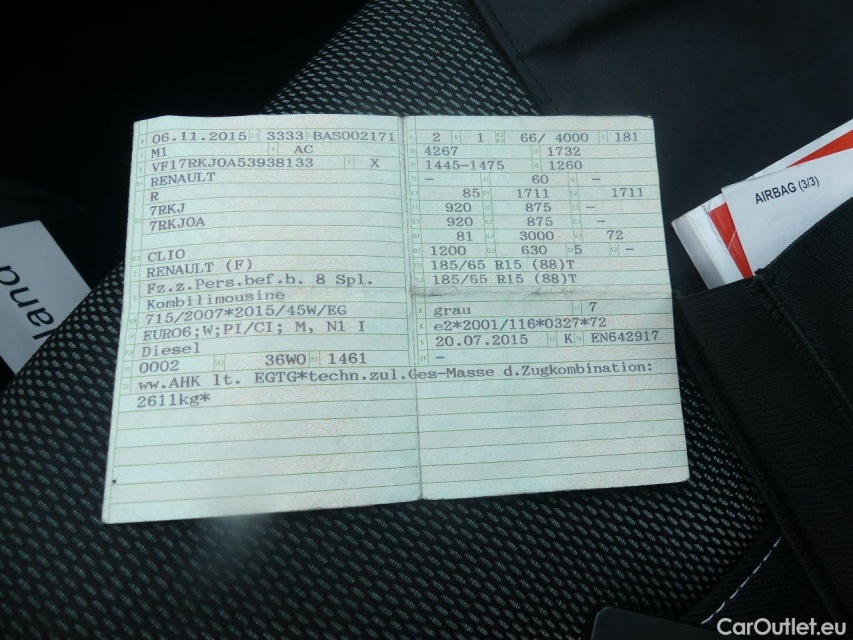 06.11.2015 3333 BAS002171
M1 AC
VF17RKJ0A53938133 X
RENAULT
R
7RKJ
7RKJ0A
CLIO
RENAULT (F)
Fz.z.Pers.bef.b. 8 Spl.
Kombilimousine
715/2007*2015/45W/EG
EURO6;W;PI/CI; M, N1 I
Diesel
0002 36W0 1461
2 1 66/ 4000 181
4267 1732
1445-1475 1260
- 60 -
85 1711 1711
920 875 -
920 875 -
81 3000 72
1200 630 5 -
185/65 R15 (88)T
185/65 R15 (88)T
grau 7
e2*2001/116*0327*72
20.07.2015 K EN642917
-
ww.AHK lt. EGTG*techn.zul.Ges-Masse d.Zugkombination:
2611kg*
AIRBAG (3/3)
land
CarOutlet.eu